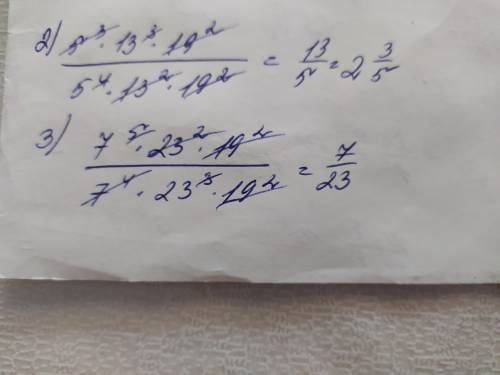 2) (5³ · 13³ · 19²) / (5⁴ · 13² · 19²) = 13/5 = 2 3/5
3) (7⁵ · 23² · 19²) / (7⁴ · 23³ · 19²) = 7/23